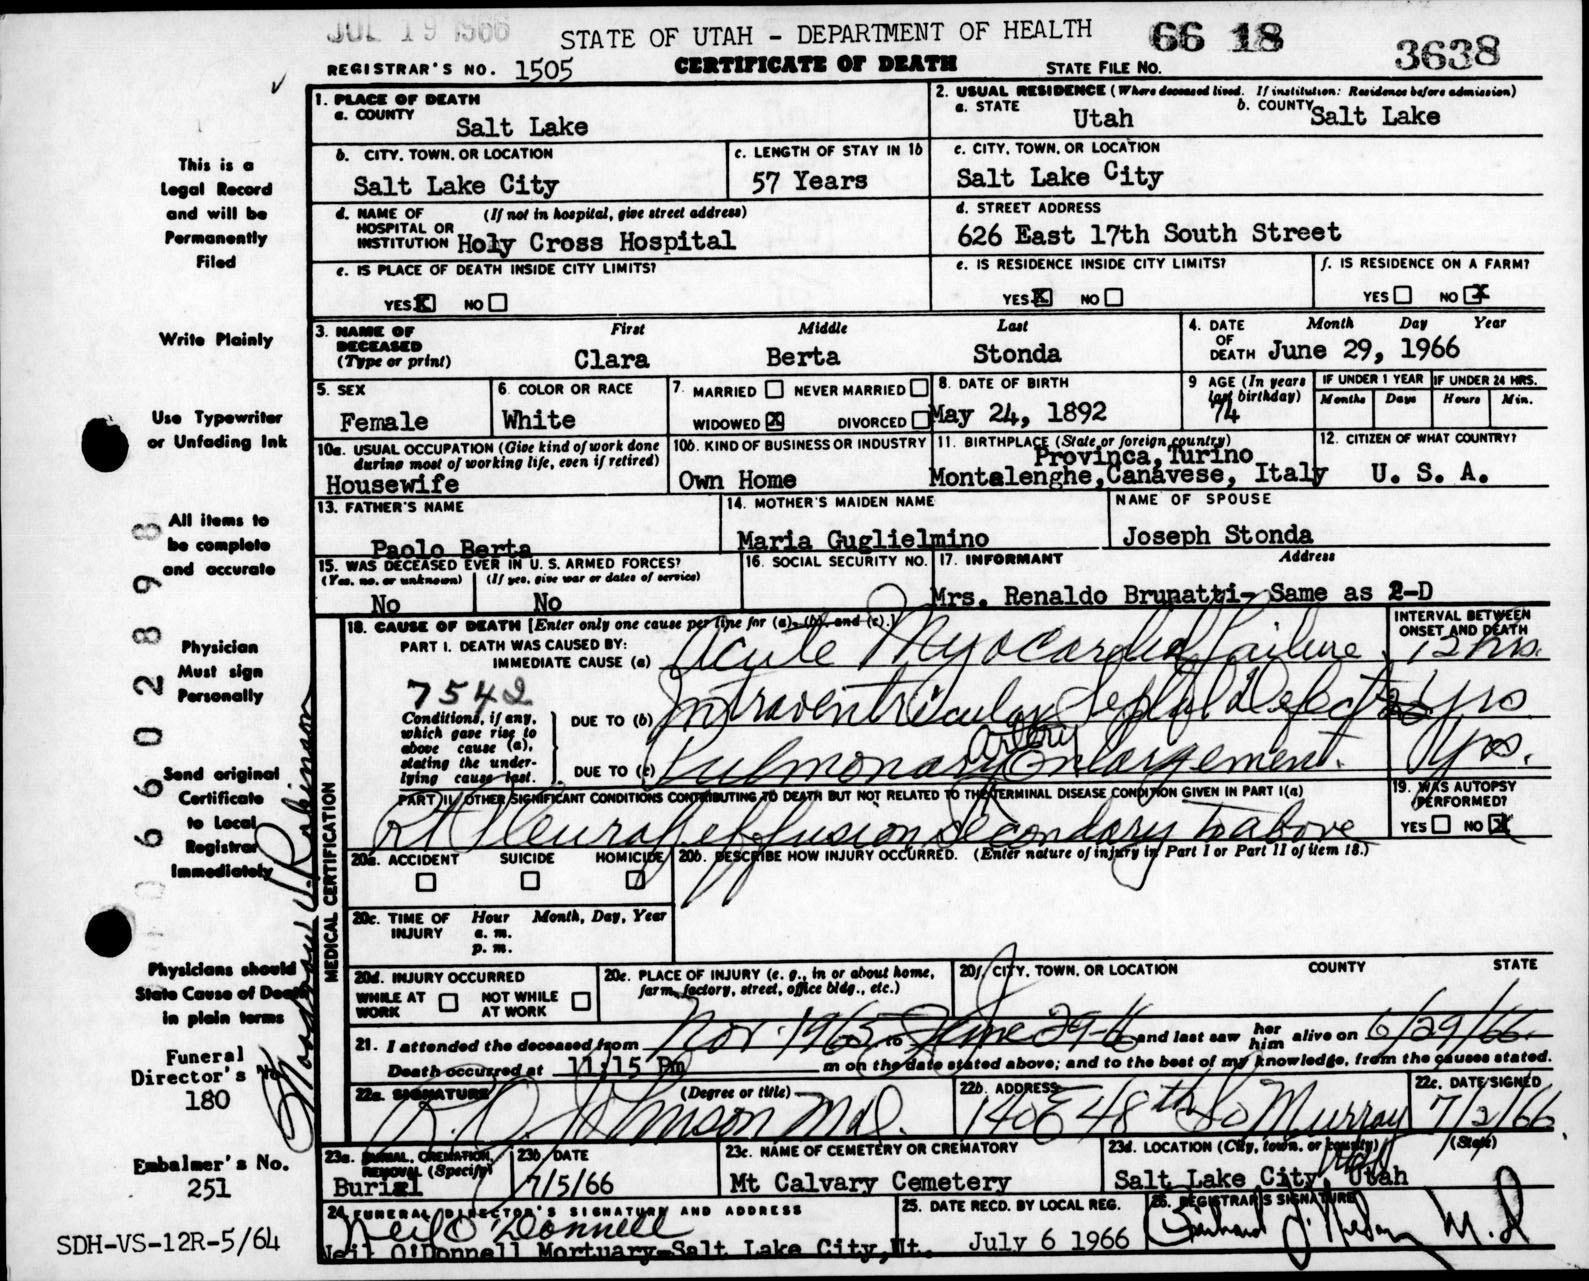 JUL 19 1966
STATE OF UTAH - DEPARTMENT OF HEALTH
66 18
3638
REGISTRAR'S NO. 1505
CERTIFICATE OF DEATH
STATE FILE NO.
✓
1. PLACE OF DEATH
a. COUNTY
Salt Lake
2. USUAL RESIDENCE (Where deceased lived. If institution: Residence before admission)
a. STATE
Utah
b. COUNTY
Salt Lake
b. CITY, TOWN, OR LOCATION
Salt Lake City
c. LENGTH OF STAY IN 1b
57 Years
c. CITY, TOWN, OR LOCATION
Salt Lake City
d. NAME OF (If not in hospital, give street address)
HOSPITAL OR
INSTITUTION Holy Cross Hospital
d. STREET ADDRESS
626 East 17th South Street
e. IS PLACE OF DEATH INSIDE CITY LIMITS?
YES X NO
e. IS RESIDENCE INSIDE CITY LIMITS?
YES X NO
f. IS RESIDENCE ON A FARM?
YES NO X
3. NAME OF
DECEASED
(Type or print)
First
Clara
Middle
Berta
Last
Stonda
4. DATE
OF
DEATH
Month Day Year
June 29, 1966
5. SEX
Female
6. COLOR OR RACE
White
7. MARRIED NEVER MARRIED
WIDOWED X DIVORCED
8. DATE OF BIRTH
May 24, 1892
9 AGE (In years
last birthday)
74
IF UNDER 1 YEAR
Months Days
IF UNDER 24 HRS.
Hours Min.
10a. USUAL OCCUPATION (Give kind of work done
during most of working life, even if retired)
Housewife
10b. KIND OF BUSINESS OR INDUSTRY
Own Home
11. BIRTHPLACE (State or foreign country)
Provinca, Turino
Montalenghe, Canavese, Italy
12. CITIZEN OF WHAT COUNTRY?
U. S. A.
13. FATHER'S NAME
Paolo Berta
14. MOTHER'S MAIDEN NAME
Maria Guglielmino
NAME OF SPOUSE
Joseph Stonda
15. WAS DECEASED EVER IN U. S. ARMED FORCES?
(Yes, no, or unknown) (If yes, give war or dates of service)
No No
16. SOCIAL SECURITY NO.
17. INFORMANT Address
Mrs. Renaldo Brunatti- Same as 2-D
18. CAUSE OF DEATH [Enter only one cause per line for (a), (b), and (c).]
INTERVAL BETWEEN
ONSET AND DEATH
PART I. DEATH WAS CAUSED BY:
IMMEDIATE CAUSE (a) Acute Myocardial failure 12 hrs.
7542
Conditions, if any,
which gave rise to
above cause (a),
stating the under-
lying cause last.
DUE TO (b) Intraventricular Septal Defect yrs
DUE TO (c) Pulmonary Artery Enlargement. yrs.
PART II. OTHER SIGNIFICANT CONDITIONS CONTRIBUTING TO DEATH BUT NOT RELATED TO THE TERMINAL DISEASE CONDITION GIVEN IN PART I(a)
Rt Pleural effusion secondary to above
19. WAS AUTOPSY
PERFORMED?
YES NO X
20a. ACCIDENT SUICIDE HOMICIDE
20b. DESCRIBE HOW INJURY OCCURRED. (Enter nature of injury in Part I or Part II of item 18.)
20c. TIME OF
INJURY
Hour Month, Day, Year
a. m.
p. m.
20d. INJURY OCCURRED
WHILE AT
WORK
NOT WHILE
AT WORK
20e. PLACE OF INJURY (e. g., in or about home,
farm, factory, street, office bldg., etc.)
20f. CITY, TOWN, OR LOCATION COUNTY STATE
21. I attended the deceased from Nov. 1965 to June 29-66 and last saw her him alive on 6/29/66
Death occurred at 11:15 Pm m on the date stated above; and to the best of my knowledge, from the causes stated.
22a. SIGNATURE (Degree or title)
R. O. Johnson M.D.
22b. ADDRESS
140 E 48th So Murray
22c. DATE SIGNED
7/2/66
23a. BURIAL, CREMATION,
REMOVAL (Specify)
Burial
23b DATE
7/5/66
23c. NAME OF CEMETERY OR CREMATORY
Mt Calvary Cemetery
23d. LOCATION (City, town, or county) (State)
Salt Lake City, Utah
24. FUNERAL DIRECTOR'S SIGNATURE AND ADDRESS
Neil O'Donnell
Neil O'Donnell Mortuary-Salt Lake City, Ut.
25. DATE RECD. BY LOCAL REG.
July 6 1966
26. REGISTRAR'S SIGNATURE
M. D
This is a
Legal Record
and will be
Permanently
Filed
Write Plainly
Use Typewriter
or Unfading Ink
All items to
be complete
and accurate
Physician
Must sign
Personally
Send original
Certificate
to Local
Registrar
Immediately
Physicians should
State Cause of Death
in plain terms
Funeral
Director's No.
180
Embalmer's No.
251
SDH-VS-12R-5/64
0660 2898
MEDICAL CERTIFICATION
J. Robinson